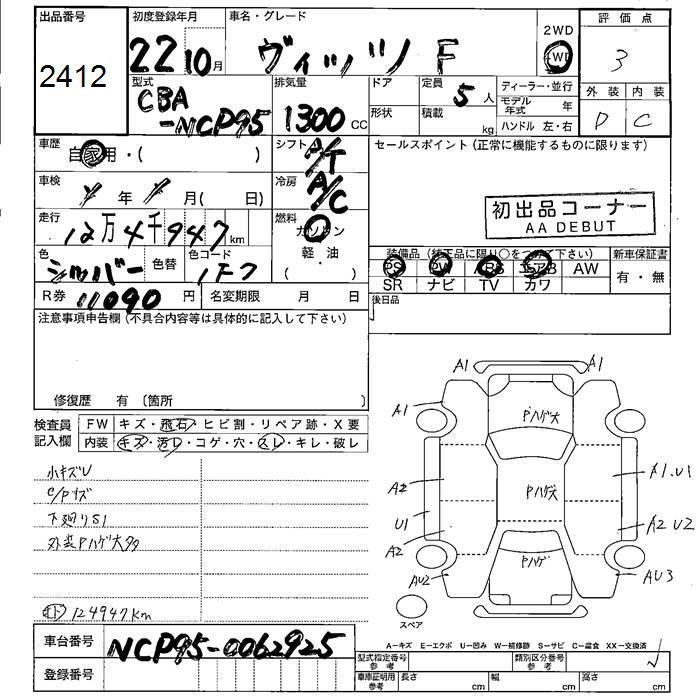 出品番号
2412
初度登録年月
22 10月
車名・グレード
ヴィッツ F
2WD
4WD
評価点
3
外装 内装
D C
型式
CBA
-NCP95
排気量
1300 CC
ドア
形状
定員
5人
積載
kg
ディーラー・並行
モデル年式 年
ハンドル 左・右
車歴
自家用・( )
シフト
A/T
セールスポイント(正常に機能するものに限ります)
初出品コーナー
AA DEBUT
車検
年 月( 日)
冷房
A/C
走行
12万4千947km
燃料
ガソリン
軽・油
( )
色
シルバー
色替
色コード
1F7
装備品(純正品に限り〇をつけて下さい)
PS PW ABS エアB AW
SR ナビ TV カワ
新車保証書
有・無
R券 11090円
名変期限 月 日
後日品
注意事項申告欄(不具合内容等は具体的に記入して下さい)
修復歴 有 〔箇所
検査員
記入欄
FW キズ・飛石・ヒビ割・リペア跡・X要
内装 キズ・汚レ・コゲ・穴・スレ・キレ・破レ
小キズU
C/Pキズ
下廻りS1
外装Pハゲ大多
124947km
A1 A1
A1
Pハゲ大
A2
Pハゲ大
A1.U1
U1
A2 U2
A2
Pハゲ
AU2
AU3
スペア
車台番号
NCP95-0062925
登録番号
A−キズ E−エクボ U−凹み W−補修跡 S−サビ C−腐食 XX−交換済
型式指定番号
参考
類別区分番号
参考
車庫証明用
参考
長さ cm
幅 cm
高さ cm